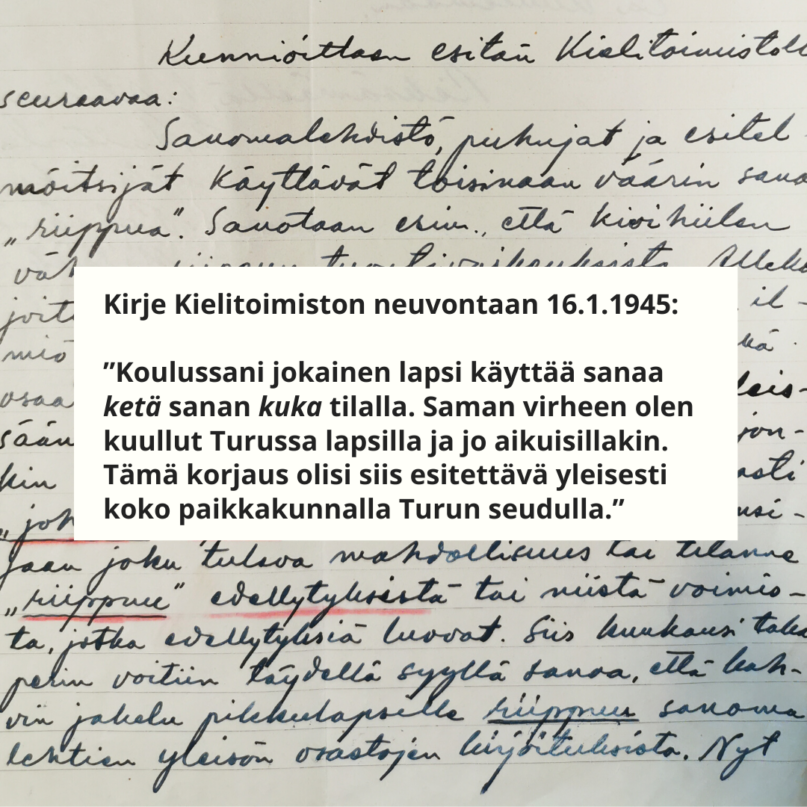 Kunnioittaen esitän Kielitoimistoll
seuraavaa:
Sanomalehdistö, puhujat ja esitel
möitsijät käyttävät toisinaan väärin sana
„riippua”. Sanotaan esim., että kivihiilen
väh
joit
miö
osaa
sään
kin
„joh
Kirje Kielitoimiston neuvontaan 16.1.1945:
”Koulussani jokainen lapsi käyttää sanaa
ketä sanan kuka tilalla. Saman virheen olen
kuullut Turussa lapsilla ja jo aikuisillakin.
Tämä korjaus olisi siis esitettävä yleisesti
koko paikkakunnalla Turun seudulla.”
jaan joku tuleva mahdollisuus tai tilanne
„riippuu” edellytyksistä tai niistä voimis-
ta, jotka edellytyksiä luovat. Siis kuukausi taka
perin voitiin täydellä syyllä sanoa, että kah-
vin jakelu pikkulapsille riippuu sanoma
lehtien yleisön osastojen kirjoituksista. Nyt